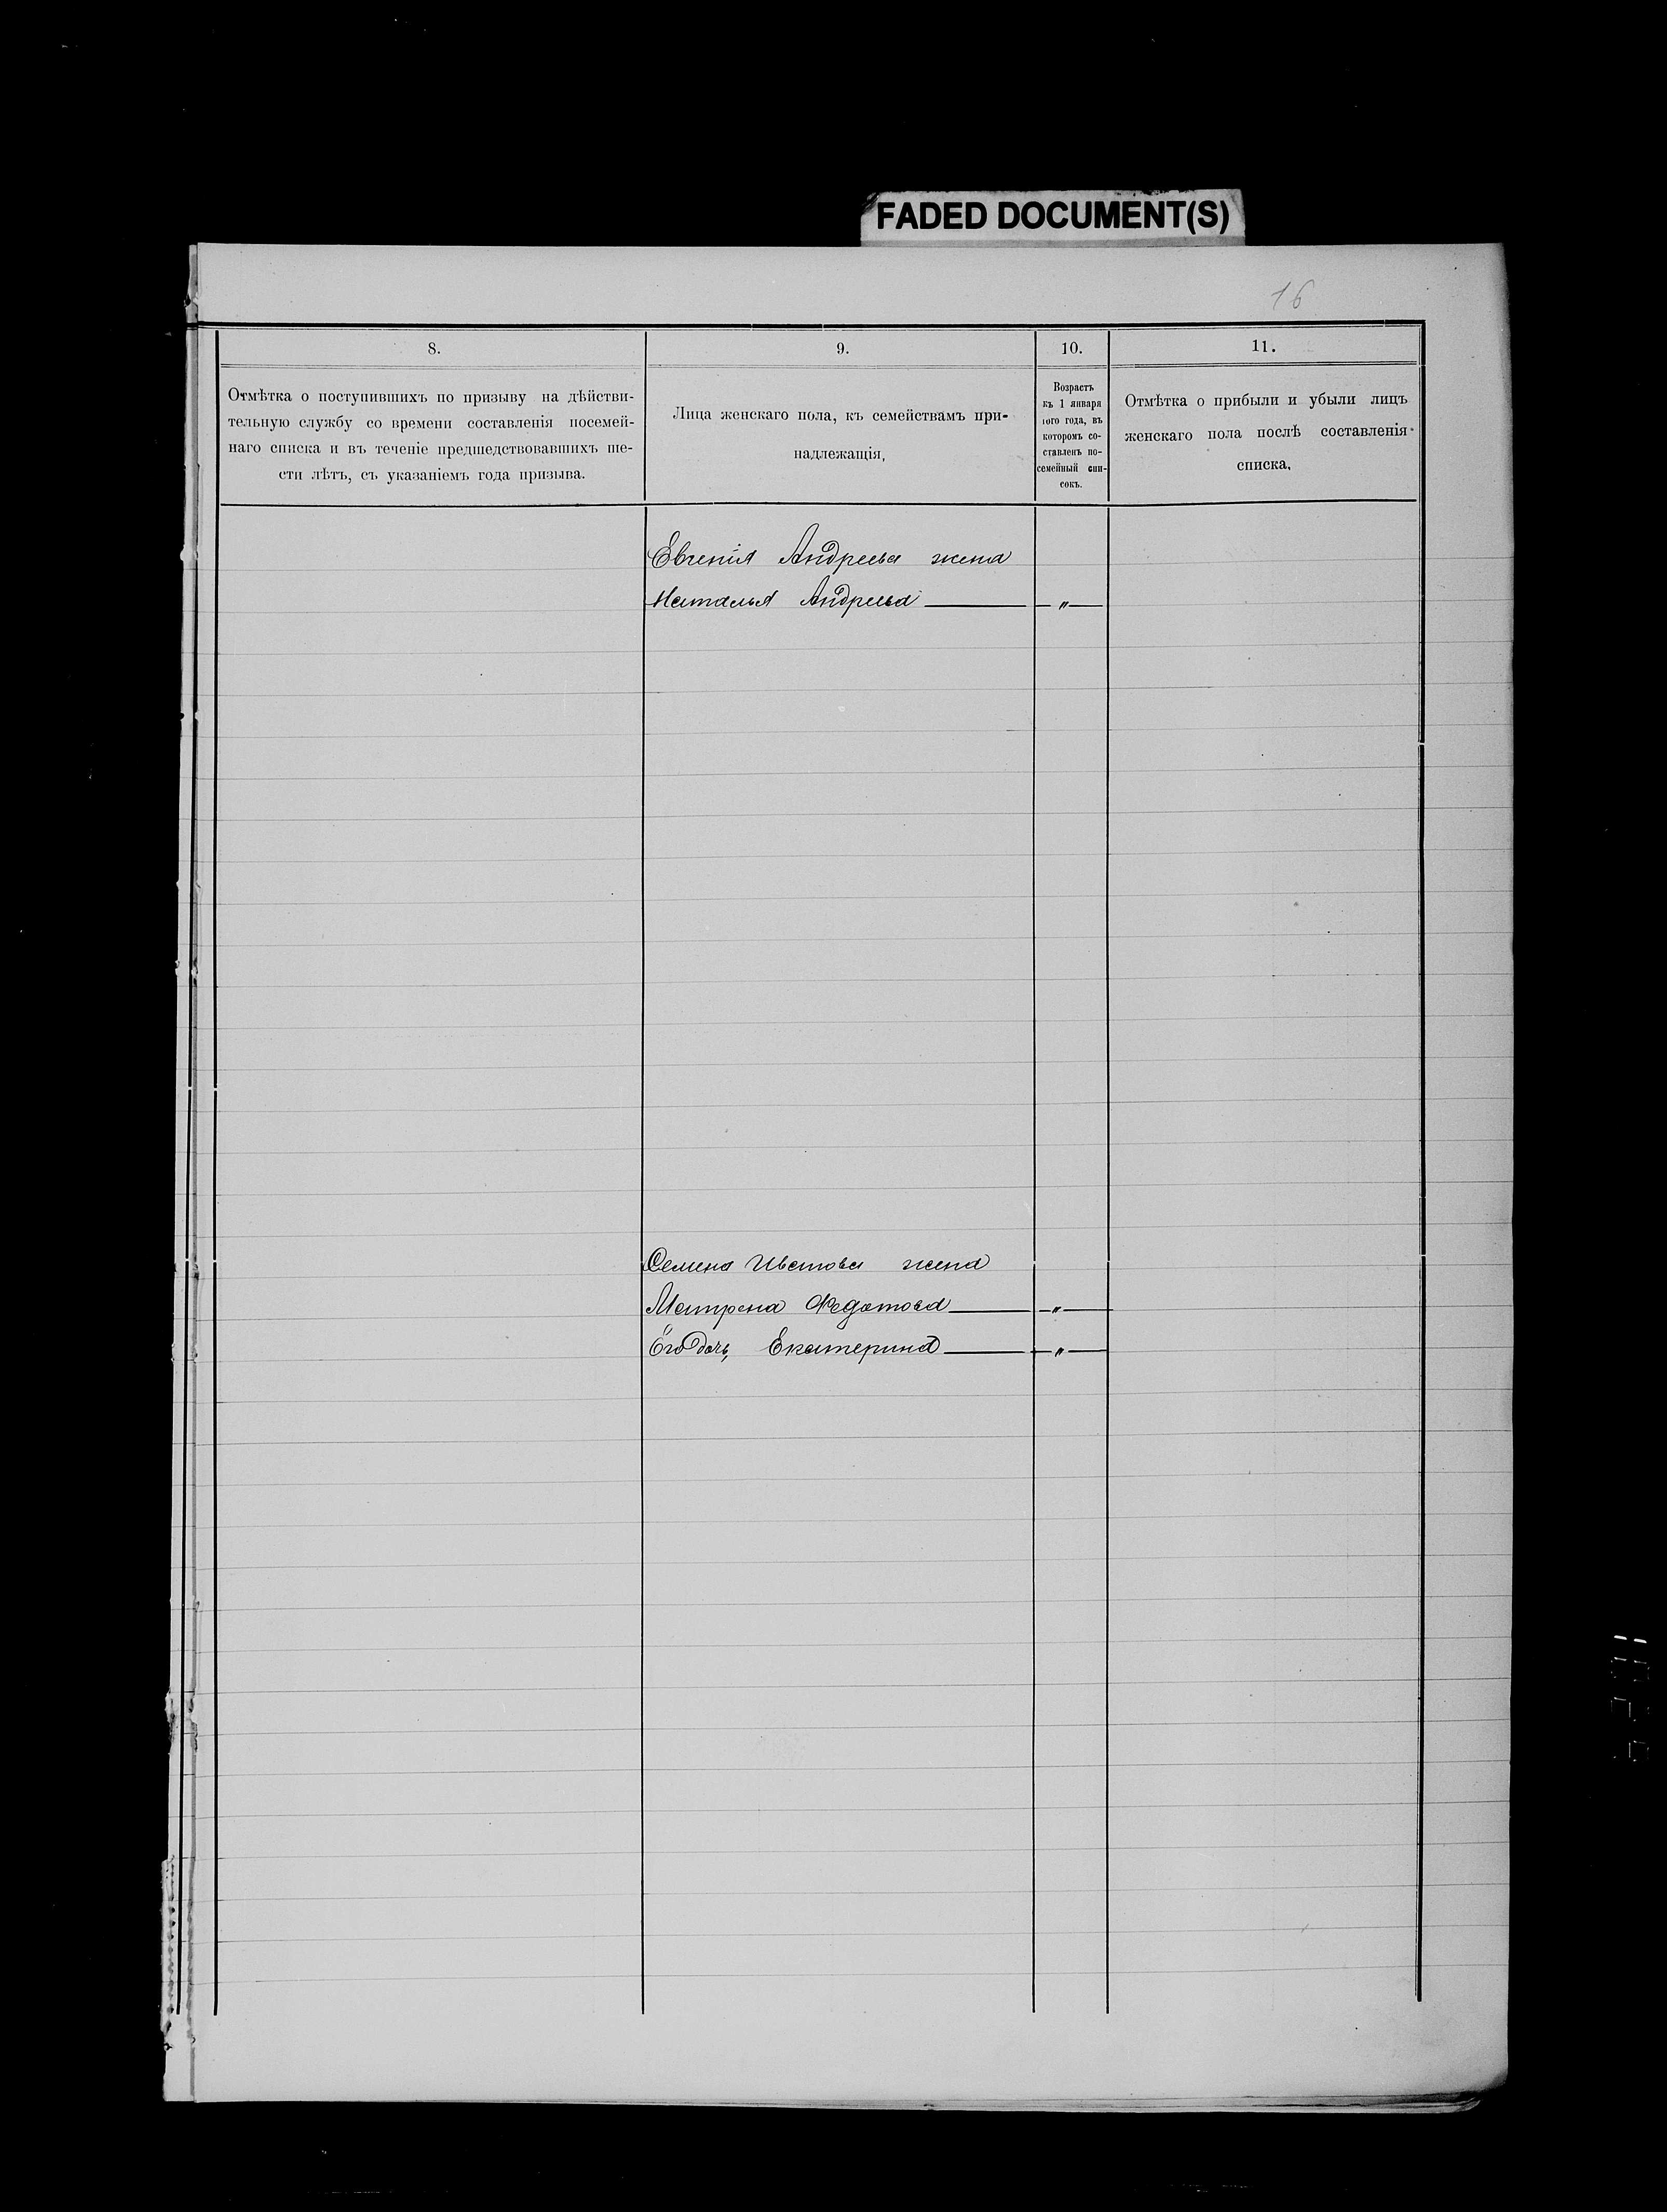 FADED DOCUMENT(S)
16
8.
Отмѣтка о поступившихъ по призыву на дѣйстви-
тельную службу со времени составленія посемей-
наго списка и въ теченіе предшедствовавшихъ ше-
сти лѣтъ, съ указаніемъ года призыва.
9.
Лица женскаго пола, къ семействамъ при-
надлежащія,
10.
Возрастъ
къ 1 января
того года, въ
которомъ со-
ставленъ по-
семейный спи-
сокъ.
11.
Отмѣтка о прибыли и убыли лицъ
женскаго пола послѣ составленія
списка,
Евгенія Андреева жена
Наталья Андреева — „ —
Семена жена
Матрена Федотова — „ —
Его дочь Екатерина — „ —